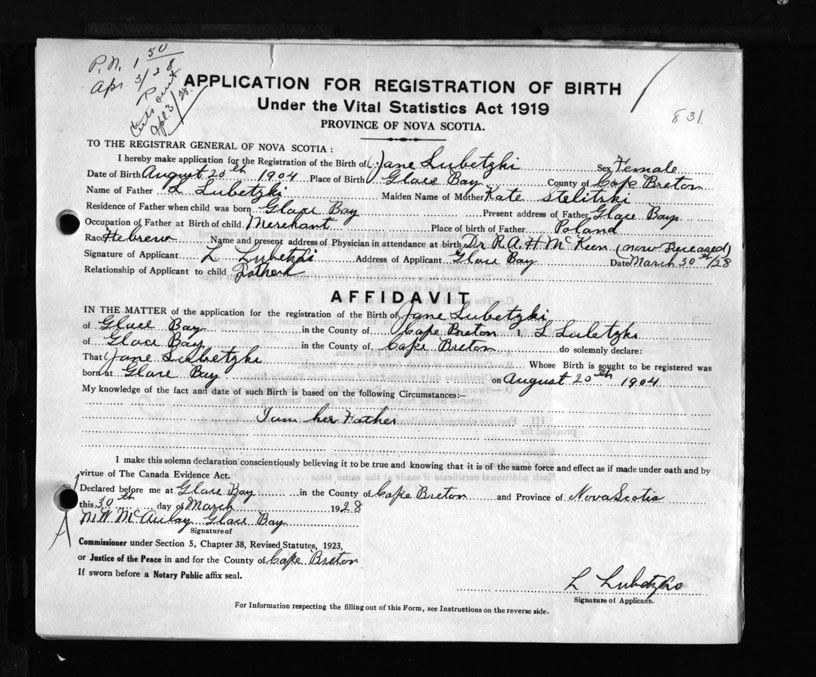 P.N. 1 50
Apr 3/28
831
APPLICATION FOR REGISTRATION OF BIRTH
Under the Vital Statistics Act 1919
PROVINCE OF NOVA SCOTIA.
TO THE REGISTRAR GENERAL OF NOVA SCOTIA:
I hereby make application for the Registration of the Birth of Jane Lubetzki Sex Female
Date of Birth August 20th 1904 Place of Birth Glace Bay County of Cape Breton
Name of Father L Lubetzki Maiden Name of Mother Kate Stelitzki
Residence of Father when child was born Glace Bay Present address of Father Glace Bay
Occupation of Father at Birth of child Merchant Place of birth of Father Poland
Race Hebrew Name and present address of Physician in attendance at birth Dr R.A.H McKeen (now Deceased)
Signature of Applicant L Lubetzki Address of Applicant Glace Bay Date March 30th/28
Relationship of Applicant to child Father
AFFIDAVIT
IN THE MATTER of the application for the registration of the Birth of Jane Lubetzki
of Glace Bay in the County of Cape Breton I, L Lubetzki
of Glace Bay in the County of Cape Breton do solemnly declare:
That Jane Lubetzki Whose Birth is sought to be registered was
born at Glace Bay on August 20th 1904
My knowledge of the fact and date of such Birth is based on the following Circumstances:—
I am her Father
I make this solemn declaration conscientiously believing it to be true and knowing that it is of the same force and effect as if made under oath and by
virtue of The Canada Evidence Act.
Declared before me at Glace Bay in the County of Cape Breton and Province of Nova Scotia
this 30th day of March 1928
M.W. McAulay Glace Bay
Signature of
Commissioner under Section 5, Chapter 38, Revised Statutes, 1923,
or Justice of the Peace in and for the County of Cape Breton
If sworn before a Notary Public affix seal.
L Lubetzki
Signature of Applicant.
For Information respecting the filling out of this Form, see Instructions on the reverse side.